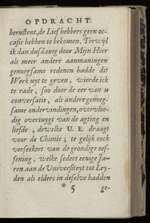 OPDRACHT.
berustent, de Lief hebbers geen oc-
casie hebben te bekomen. Terwijl
ik dan dus lang door Mijn Heer
als meer andere aanmaningen
genoegsame redenen hadde dit
Werk uyt te geven, wierde ik
te rade, soo door de eer van u
conversatie, als andere genoeg-
same ondervindingen, overvloe-
dig overtuygt van de agting en
liefde, dewelke U. E. draagt
voor de Chimie; te gelijk ook
versekert van de grondige oef-
fening, welke sedert eenige Ja-
ren aan de Universiteyt tot Ley-
den als elders in deselve hadden
* 5 ge-